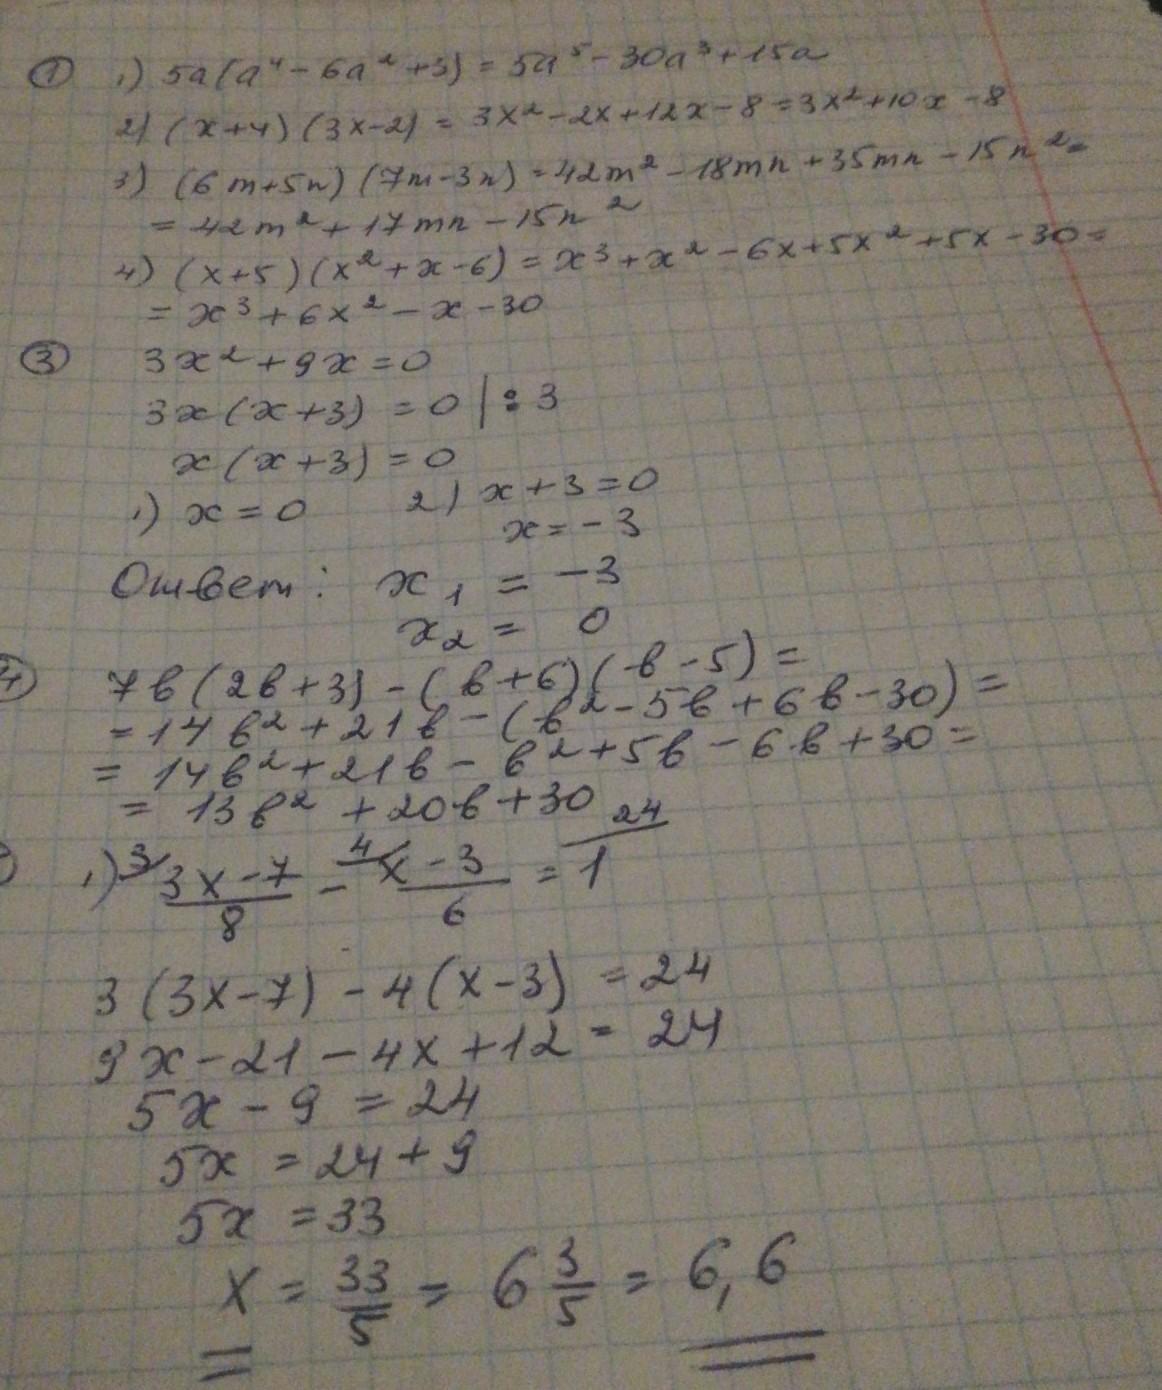 ① 1) 5a(a⁴ - 6a² + 3) = 5a⁵ - 30a³ + 15a
2) (x+4)(3x-2) = 3x² - 2x + 12x - 8 = 3x² + 10x - 8
3) (6m+5n)(7m-3n) = 42m² - 18mn + 35mn - 15n² =
= 42m² + 17mn - 15n²
4) (x+5)(x² + x - 6) = x³ + x² - 6x + 5x² + 5x - 30 =
= x³ + 6x² - x - 30
③ 3x² + 9x = 0
3x(x+3) = 0 | : 3
x(x+3) = 0
1) x = 0 2) x + 3 = 0
x = -3
Ответ: x₁ = -3
x₂ = 0
④ 7b(2b+3) - (b+6)(b-5) =
= 14b² + 21b - (b² - 5b + 6b - 30) =
= 14b² + 21b - b² + 5b - 6b + 30 =
= 13b² + 20b + 30
1) ³⁄ (3x-7)/8 - ⁴⁄ (x-3)/6 = ²⁴⁄ 1
3(3x-7) - 4(x-3) = 24
9x - 21 - 4x + 12 = 24
5x - 9 = 24
5x = 24 + 9
5x = 33
x = 33/5 = 6 3/5 = 6,6